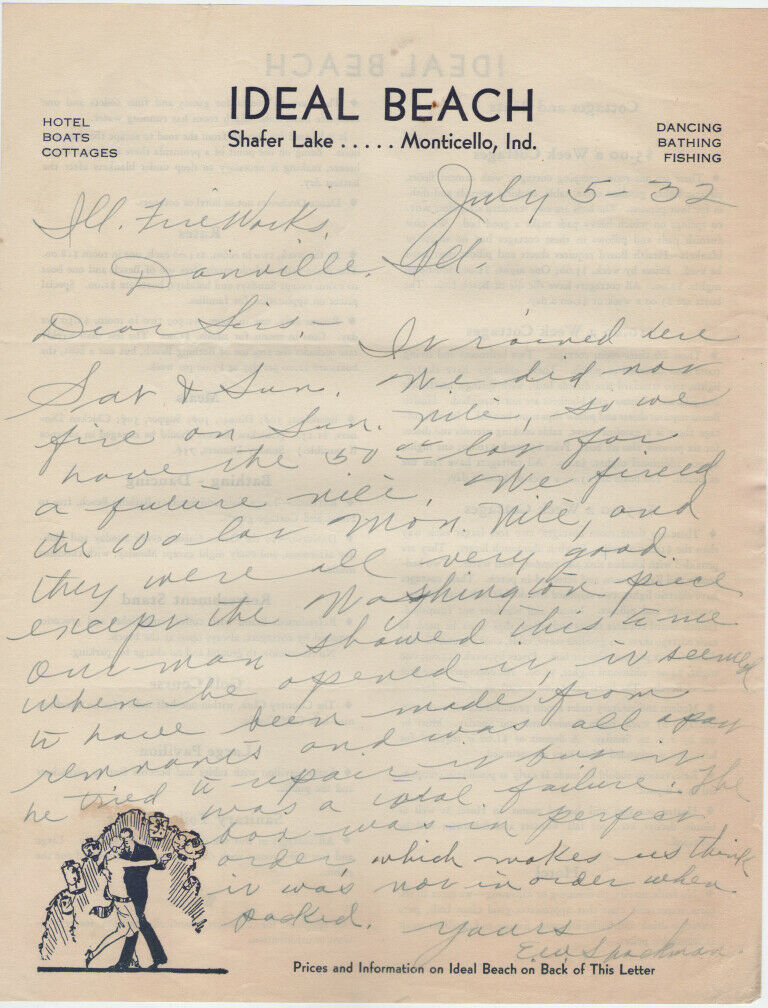 IDEAL BEACH
Shafer Lake ..... Monticello, Ind.
HOTEL
BOATS
COTTAGES
DANCING
BATHING
FISHING
July 5-32
Ill. FireWorks,
Danville, Ill.
Dear Sirs,- It rained here
Sat & Sun. We did not
fire on Sun. Nite, so we
have the 50 00 lot for
a future nite. We fired
the 100 lot Mon. Nite, and
they were all very good.
except the Washington piece
our man showed this time
when he opened it, it seemed
to have been made from
remnants and was all apart
he tried to repair it but it
was a total failure. The
box was in perfect
order which makes us think
it was not in order when
packed. Yours
E.W. Spackman.
Prices and Information on Ideal Beach on Back of This Letter